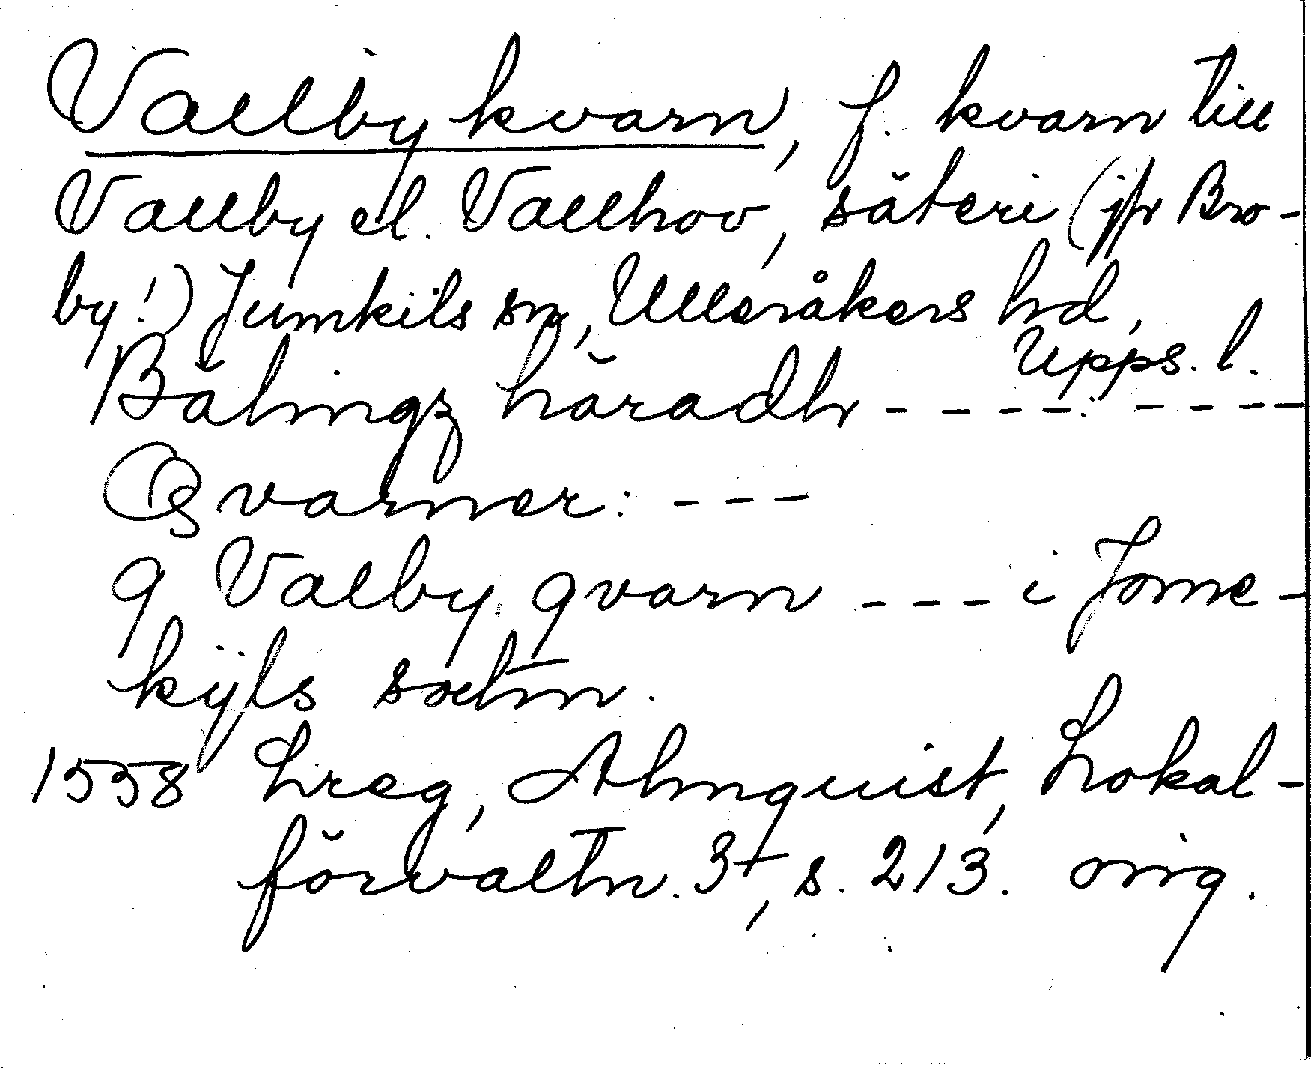 Vallby kvarn, f. kvarn till
Vallby el. Vallhov, säteri (jfr Bro-
by!) Jumkils sn, Ulleråkers hd,
Upps. l.
Bälingz häradh - - - - - - - -
Qvarner: - - -
9 Valby qvarn - - - i Jome-
kÿls sockn.
1558 Lreg, Almquist, Lokal-
förvaltn. 3, s. 213. orig.